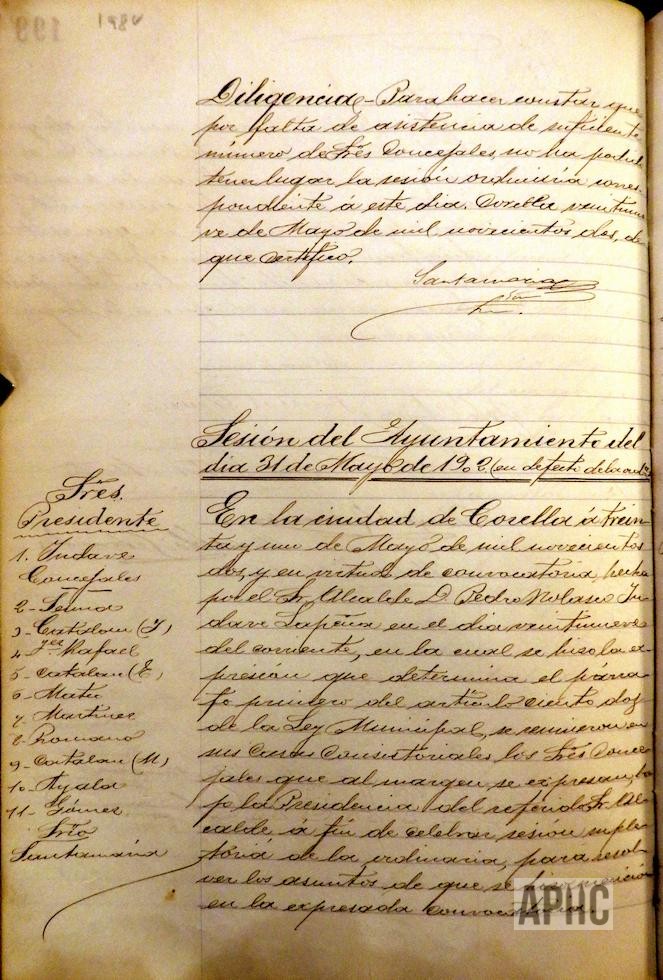 199
Diligencia - Para hacer constar que
por falta de asistencia de suficiente
número de Srēs Concejales, no ha podido
tener lugar la sesión ordinaria corres-
pondiente á este dia. Corella veintinue-
ve de Mayo de mil novecientos dos, de
que certifico.
Santamaria
Sesión del Ayuntamiento del
dia 31 de Mayo de 1902 (en defecto de la ord.ª)
Srēs.
Presidente
1. Yndave
Concejales
2 -
3 - Catalan (J)
4 Rafael
5 - Catalan (E)
6 - Mateo
7 - Martinez
8 - Romano
9 - Catalan (M)
10 - Ayala
11 - Gómez
Srīo
Santamaria
En la ciudad de Corella á trein-
ta y uno de Mayo de mil novecientos
dos, y en virtud de convocatoria, hecha
por el Sr. Alcalde D. Pedro Nolasco Yn-
dave Lapeña en el dia veintinueve
del corriente, en la cual se hizo la ex-
presión que determina el párra-
fo primero del artículo ciento dos
de la Ley Municipal, se reunieron en
sus Casas Consistoriales los Srēs Conce-
jales que al margen se expresan, ba-
jo la Presidencia del referido Sr. Al-
calde á fin de celebrar sesión suple-
tória de la ordinaria, para resol-
ver los asuntos de que se hizo mención
en la expresada convocatoria.
APHC